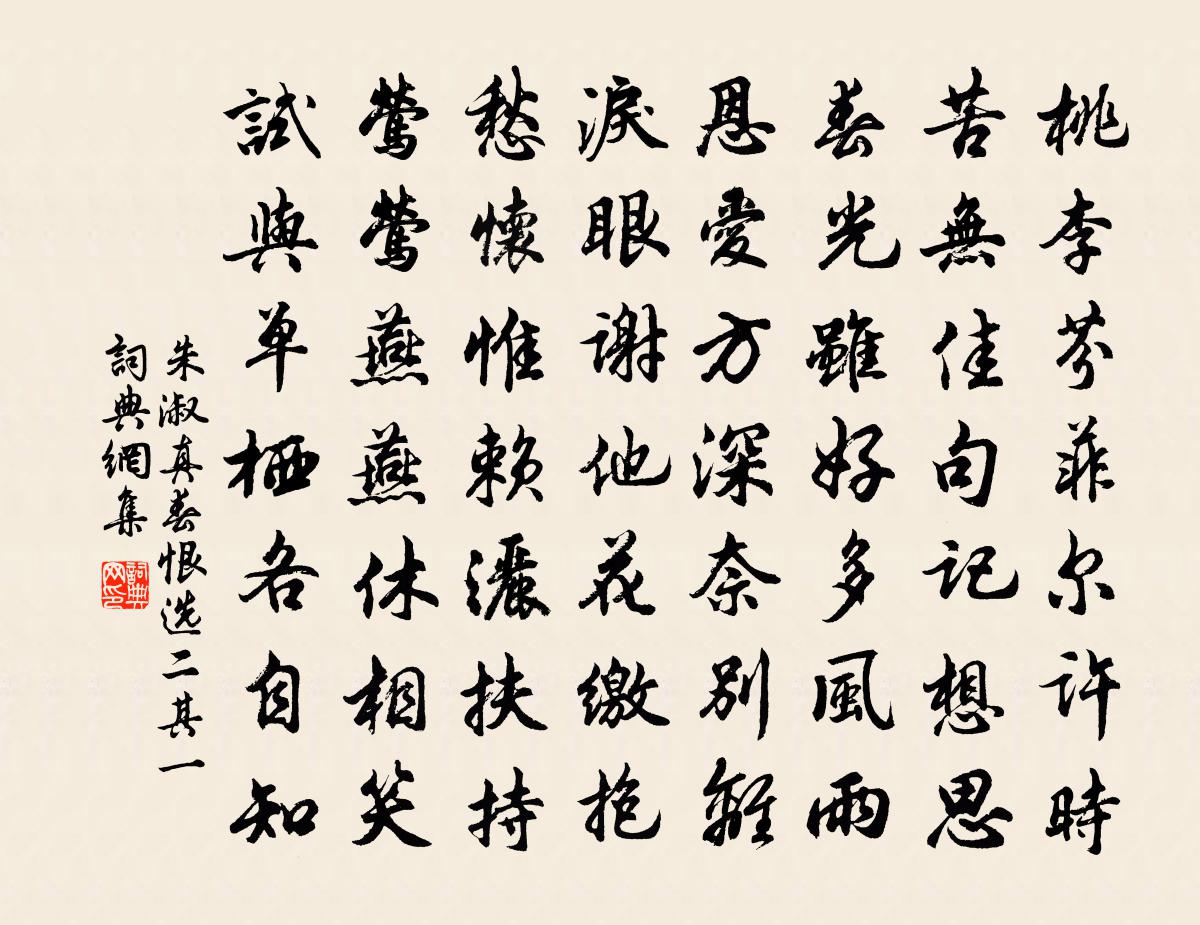 桃李芬菲尔許時
苦無佳句記想思
春光雖好多風雨
恩愛方深奈別離
淚眼謝他花繳抱
愁懷惟賴灑扶持
鶯鶯燕燕休相笑
試與单栖各自知
朱淑真春恨选二其一
詞典網集
詞典网印